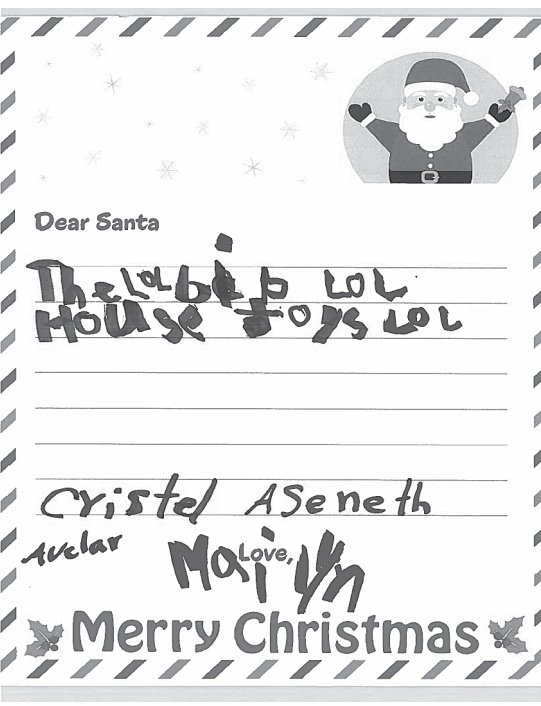 Dear Santa
The LOL
House toys LOL
Cristel Aseneth
Avelar
Love,
Mailyn
Merry Christmas